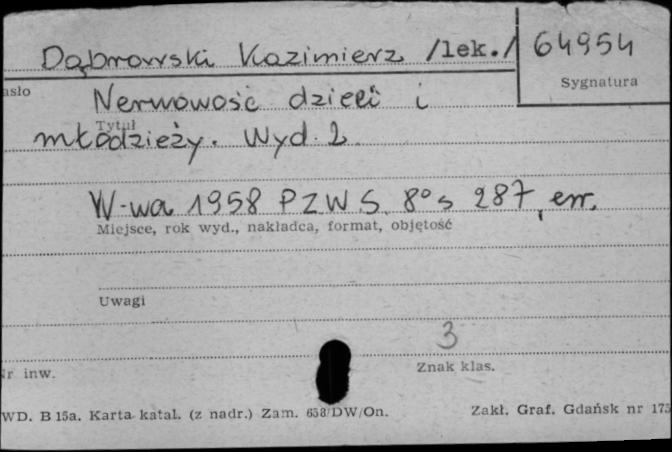 Dąbrowski Kazimierz /lek./ 64954
Sygnatura
asło
Nerwowość dzieci i
Tytuł
młodzieży. Wyd. 2.
W-wa 1958 PZWS. 8° s 287, err.
Miejsce, rok wyd., nakładca, format, objętość
Uwagi
3
Znak klas.
Nr inw.
WD. B 15a. Karta katal. (z nadr.) Zam. 658/DW/On. Zakł. Graf. Gdańsk nr 175